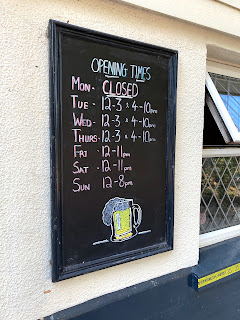 OPENING TIMES
MON- CLOSED
TUE - 12-3 & 4-10pm
WED- 12-3 & 4-10pm
THURS- 12-3 & 4-10pm
FRI 12-11pm
SAT 12-11pm
SUN 12-8pm